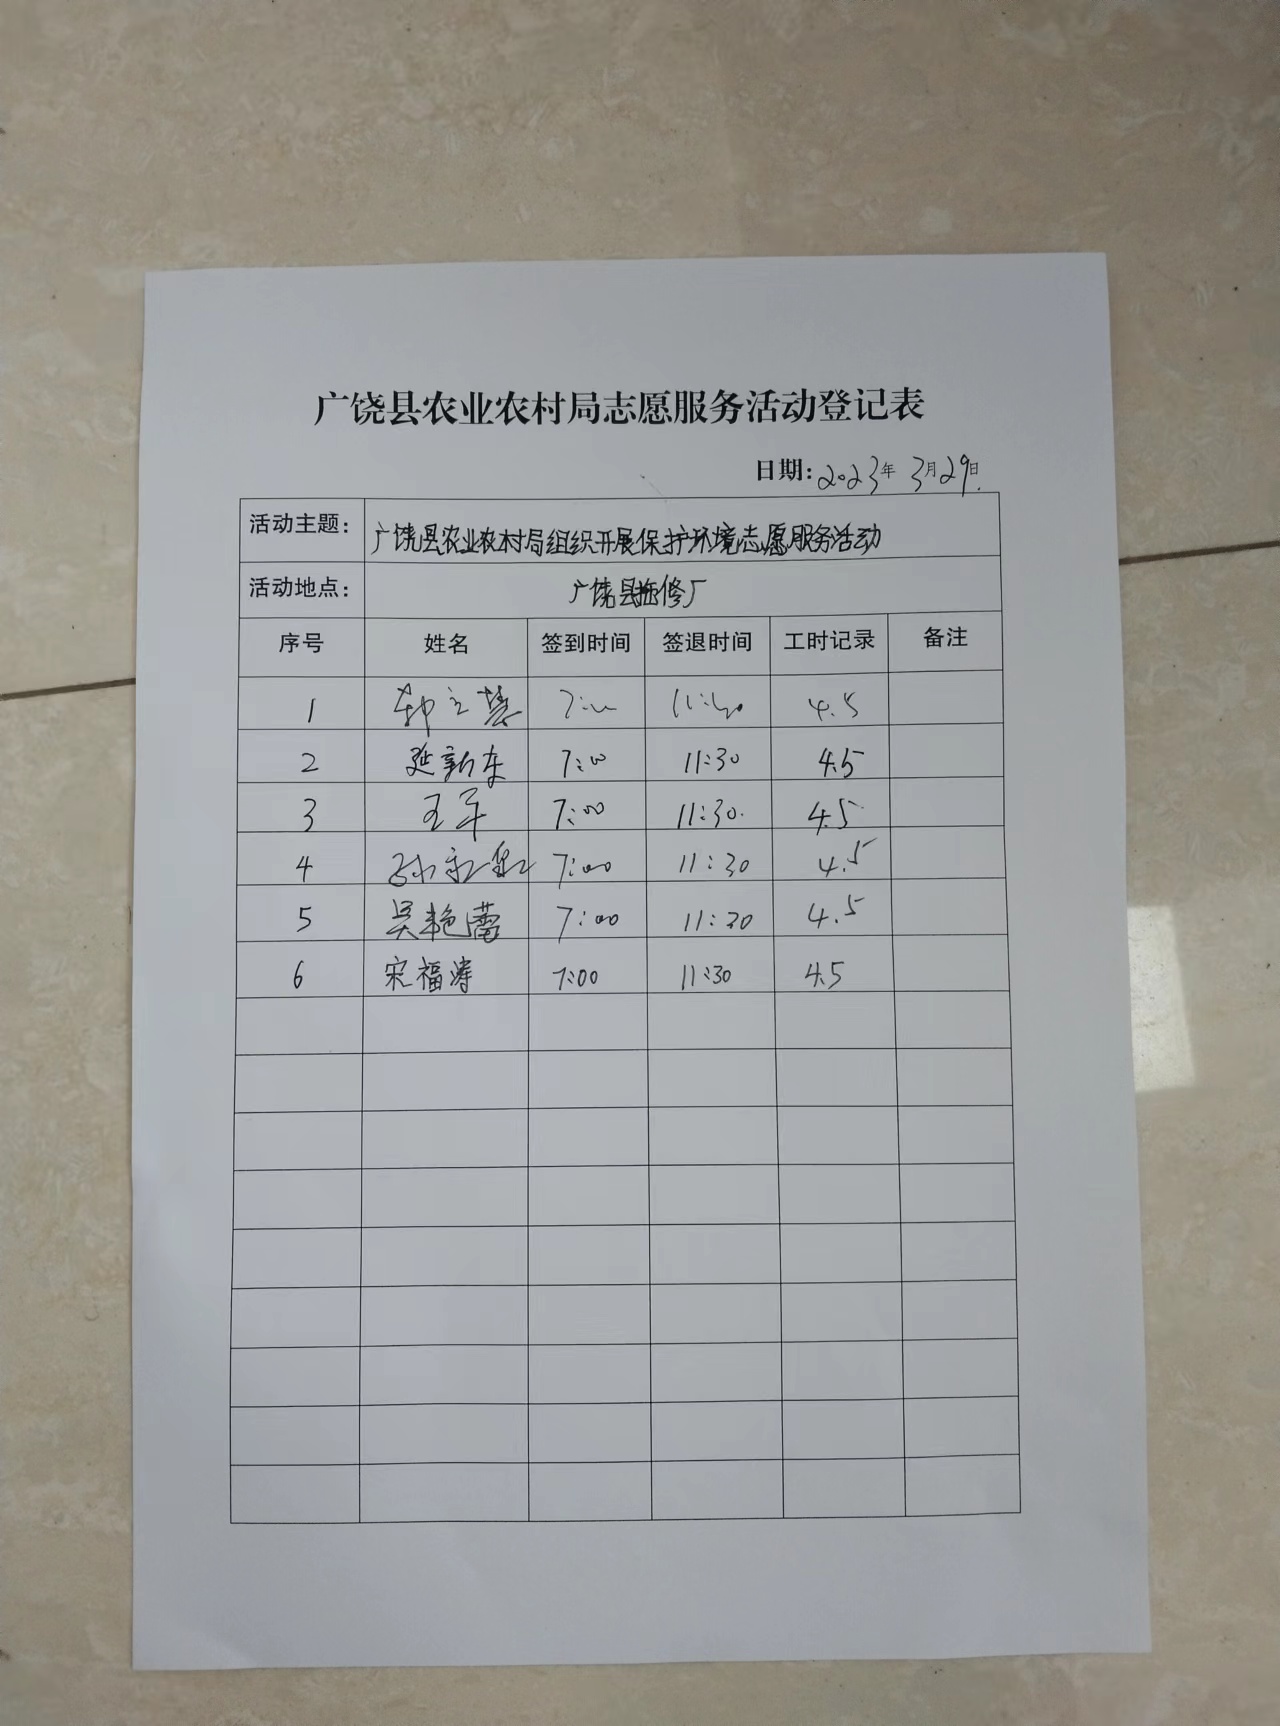 广饶县农业农村局志愿服务活动登记表
日期:2023年3月29日.
活动主题: 广饶县农业农村局组织开展保护环境志愿服务活动
活动地点: 广饶县拖修厂
序号 姓名 签到时间 签退时间 工时记录 备注
1 4.5
2 延新东 7:00 11:30 4.5
3 王军 7:00 11:30. 4.5
4 孙 7:00 11:30 4.5
5 吴艳蕾 7:00 11:30 4.5
6 宋福涛 7:00 11:30 4.5